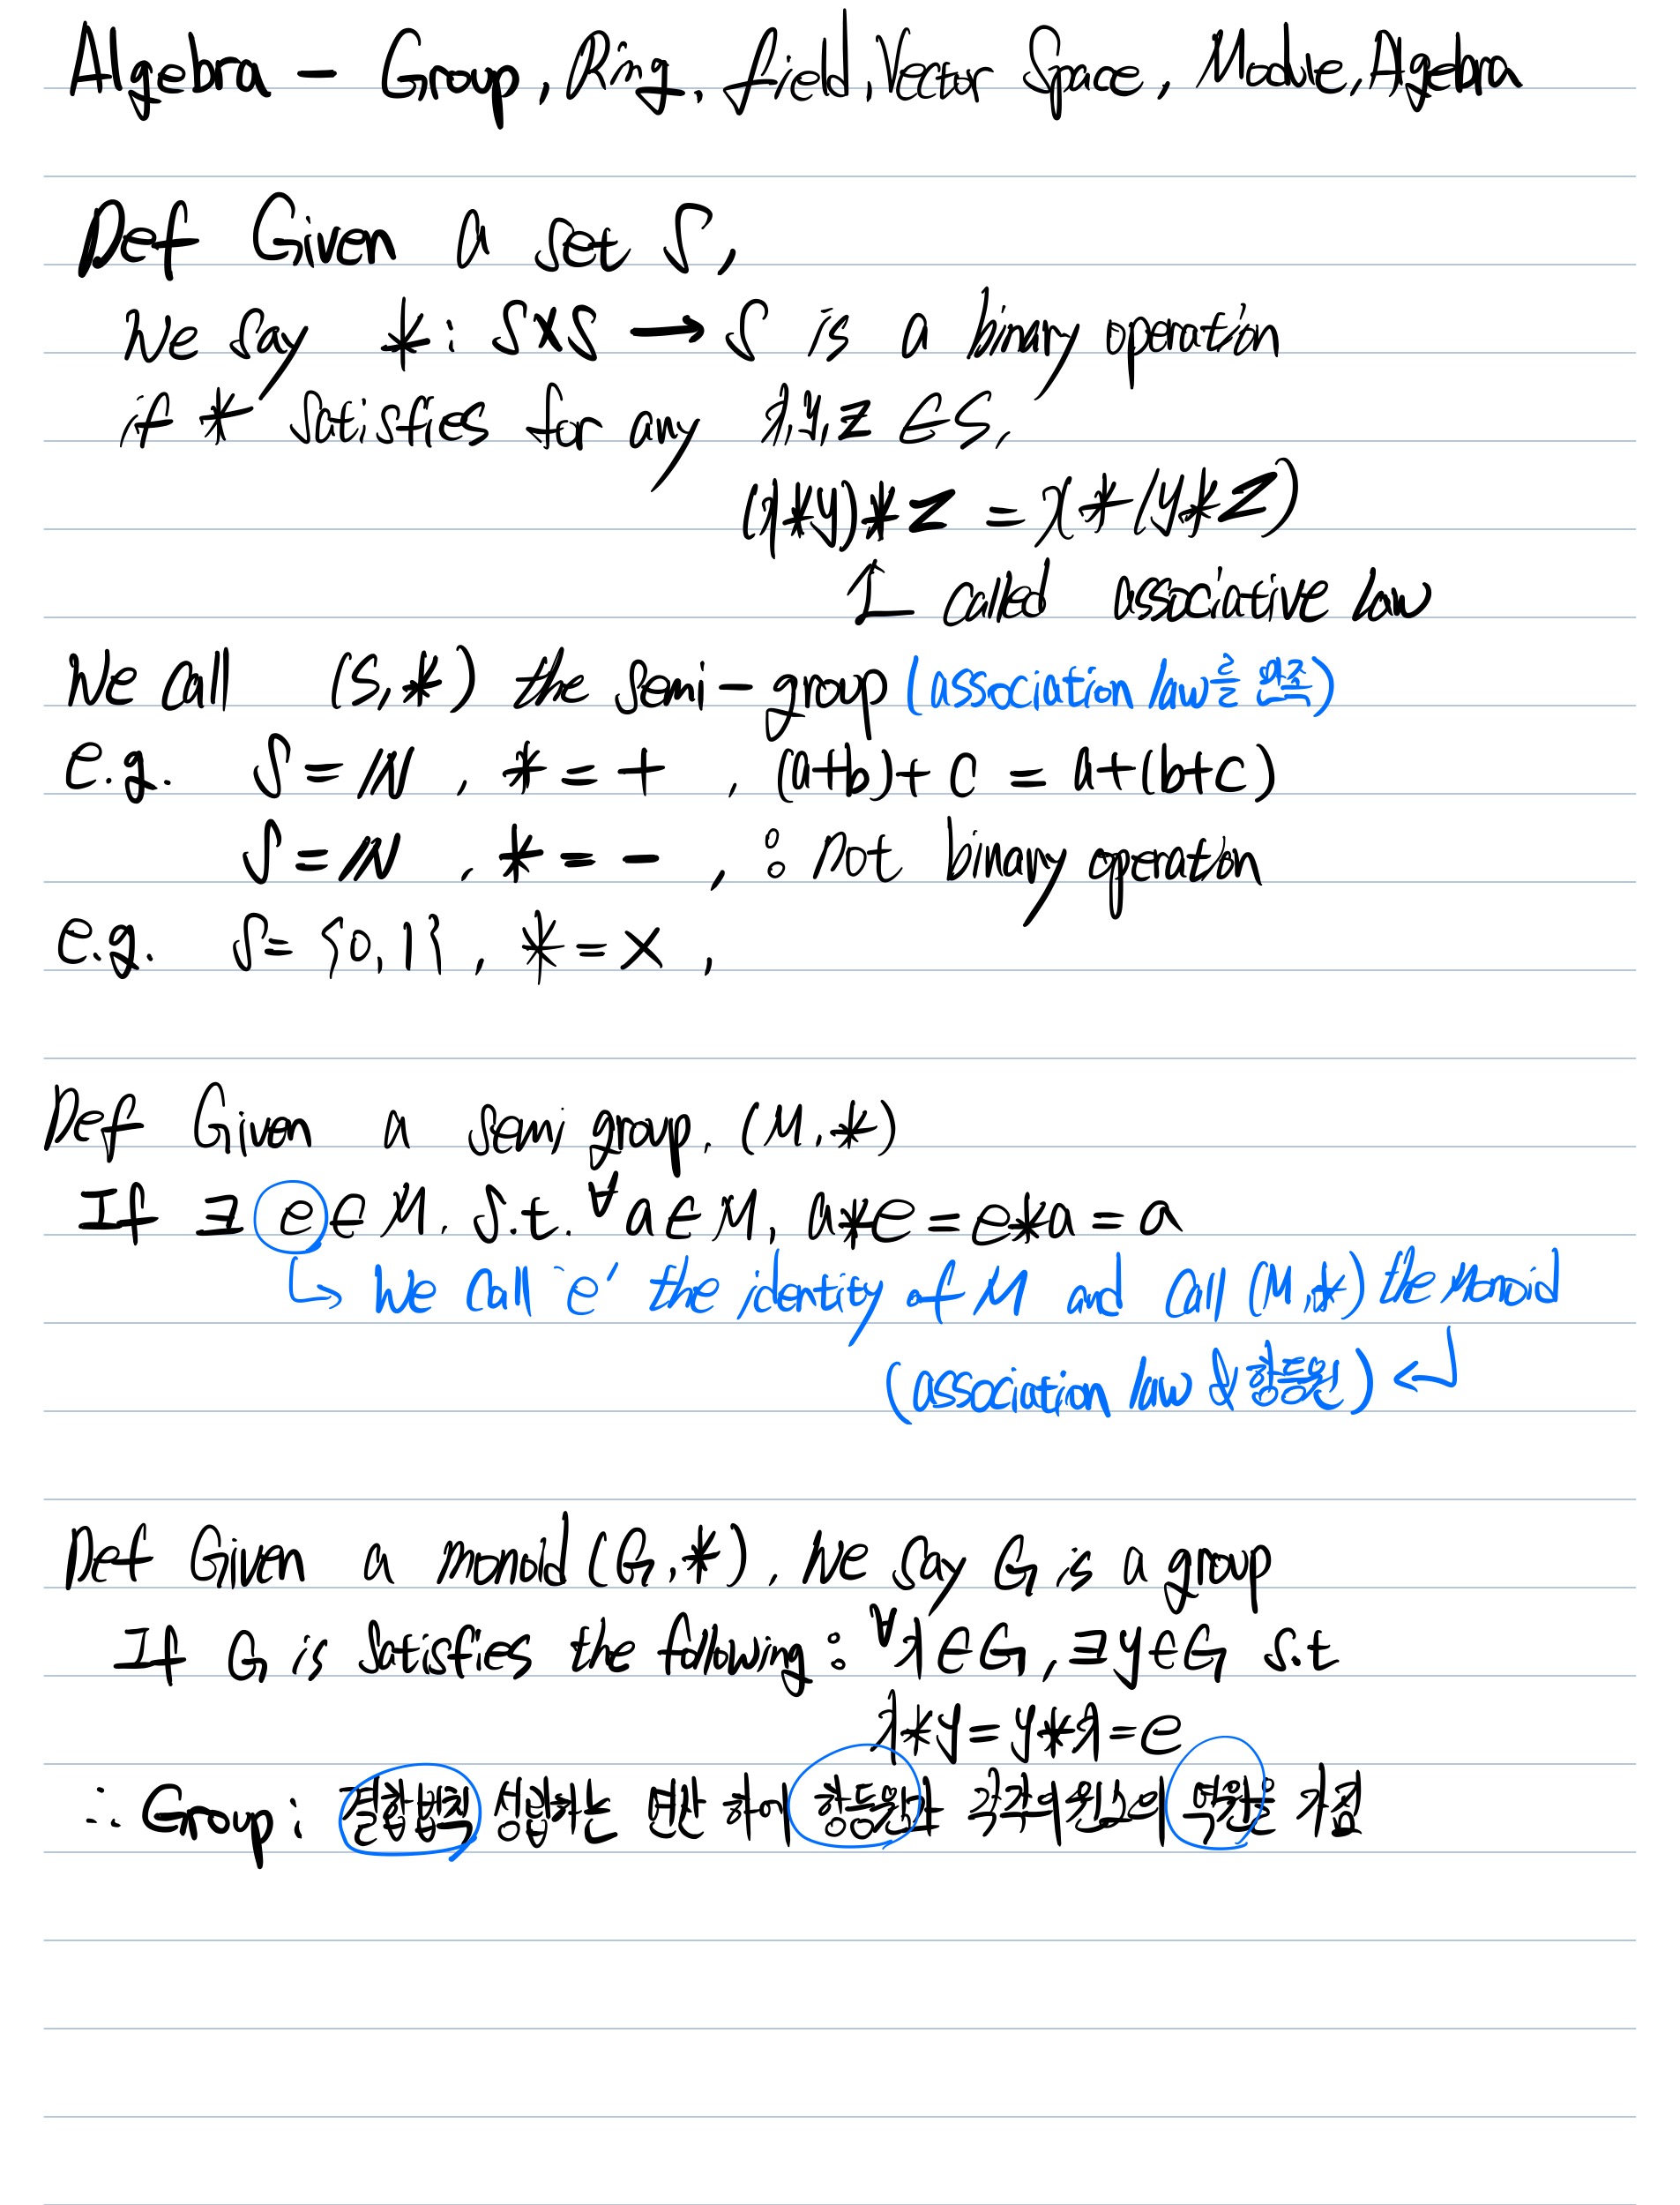 Algebra – Group, Ring, field, Vector Space, Module, Algebra
Def Given a set S,
We say * : S×S → S is a binary operation
if * satisfies for any x,y,z ∈ S,
(x*y)*z = x*(y*z)
↑ called associative law
We call (S,*) the semi-group (association law를 만족)
e.g. S = ℕ , * = + , (a+b)+c = a+(b+c)
S = ℕ , * = – , : not binary operation
e.g. S = {0,1}, * = × ,
Def Given a semi group, (M,*)
If ∃ e ∈ M. s.t. ∀a∈M, a*e = e*a = a
↳ We call 'e' the identity of M and call (M,*) the Monoid
(association law & 항등원) ↵
Def Given a monoid (G,*), We say G is a group
If G is satisfies the following : ∀x∈G, ∃y∈G s.t
x*y = y*x = e
∴ Group : 결합법칙 성립하는 연산 하에 항등원과 각각의 원소의 역원을 가짐